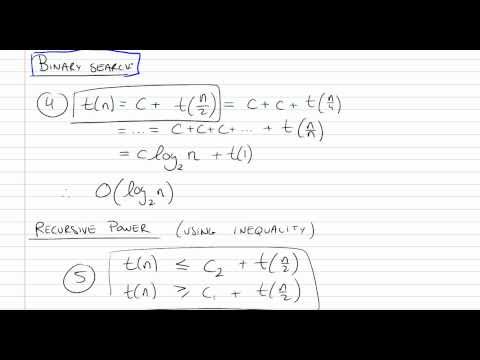 BINARY SEARCH
④ t(n) = C + t(n/2) = C + C + t(n/4)
= ... = C+C+C+ ... + t(n/n)
= c log₂ n + t(1)
∴ O(log₂ n)
RECURSIVE POWER (USING INEQUALITY)
⑤ t(n) ≤ C₂ + t(n/2)
t(n) ≥ C₁ + t(n/2)